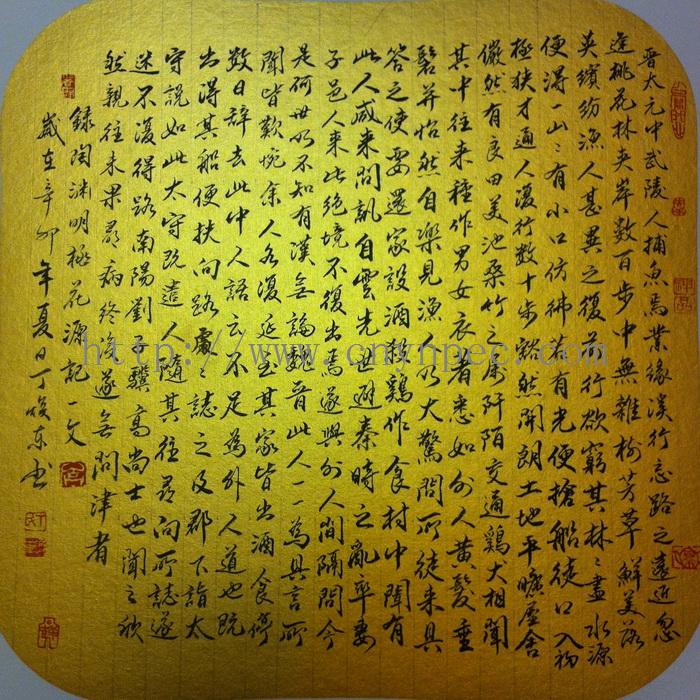 晋太元中武陵人捕魚為業緣溪行忘路之遠近忽
逢桃花林夹岸数百步中無雜樹芳草鮮美落
英繽紛漁人甚異之復前行欲窮其林々盡水源
便得一山々有小口仿彿若有光便捨船徒口入初
極狹才通人復行数十步豁然開朗土地平曠屋舍
儼然有良田美池桑竹之属阡陌交通鷄犬相聞
其中往来種作男女衣著悉如外人黄髮垂
髫并怡然自樂見漁人乃大驚問所徒来具
答之便要還家設酒殺鷄作食村中聞有
此人咸来問訊自雲先世避秦時之亂率妻
子邑人来此绝境不復出焉遂與外人間隔問今
是何世乃不知有漢無論魏晋此人一一為具言所
聞皆歎惋余人各復延至其家皆出酒食停
数日辞去此中人語云不足為外人道也既
出得其船便扶向路處々誌之及郡下詣太
守説如此太守既遣人隨其往尋向所誌遂
迷不復得路南陽劉子驥高尚士也聞之欣
然親往未果尋病终後遂無問津者
録陶渊明桃花源記一文
歲在辛卯年夏日丁俊东书
http://www.cnynpec.com